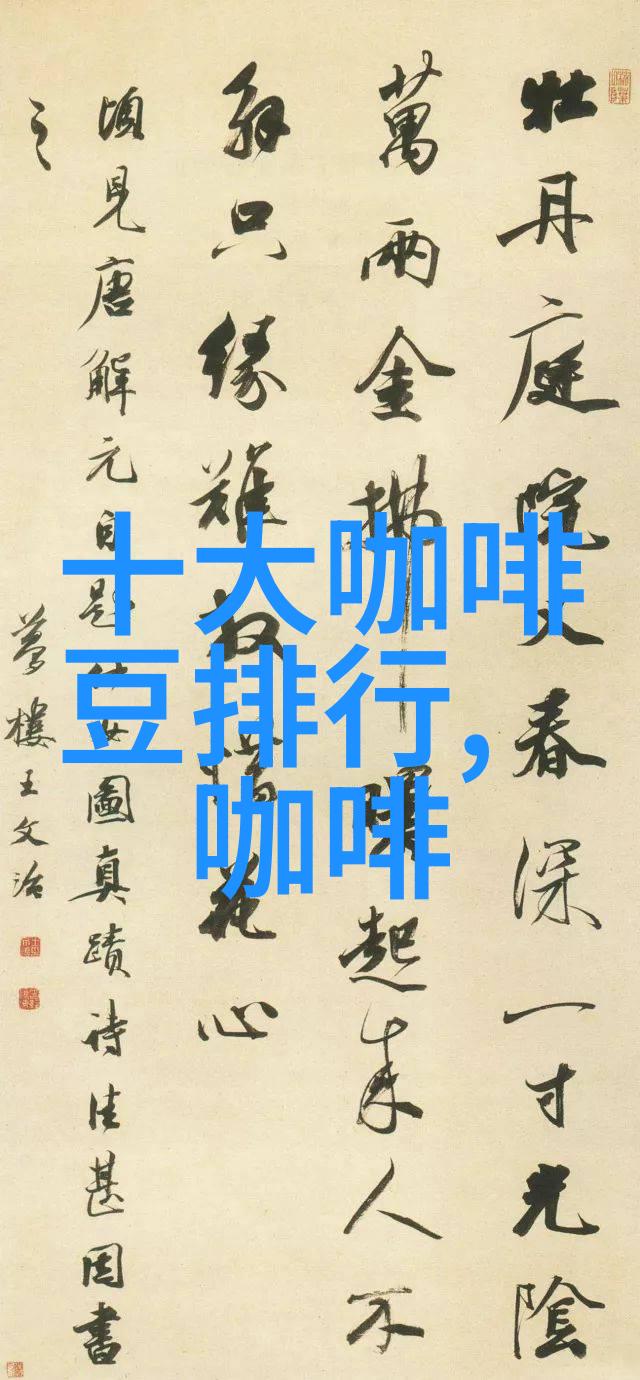 十大咖啡
豆排行,
咖啡
牡丹庭院又春深一寸光陰
萬兩金拂曙起來人不
解只緣難放惜花心
頃見唐解元自題仕女圖真蹟詩佳甚因書
之
夢樓王文治